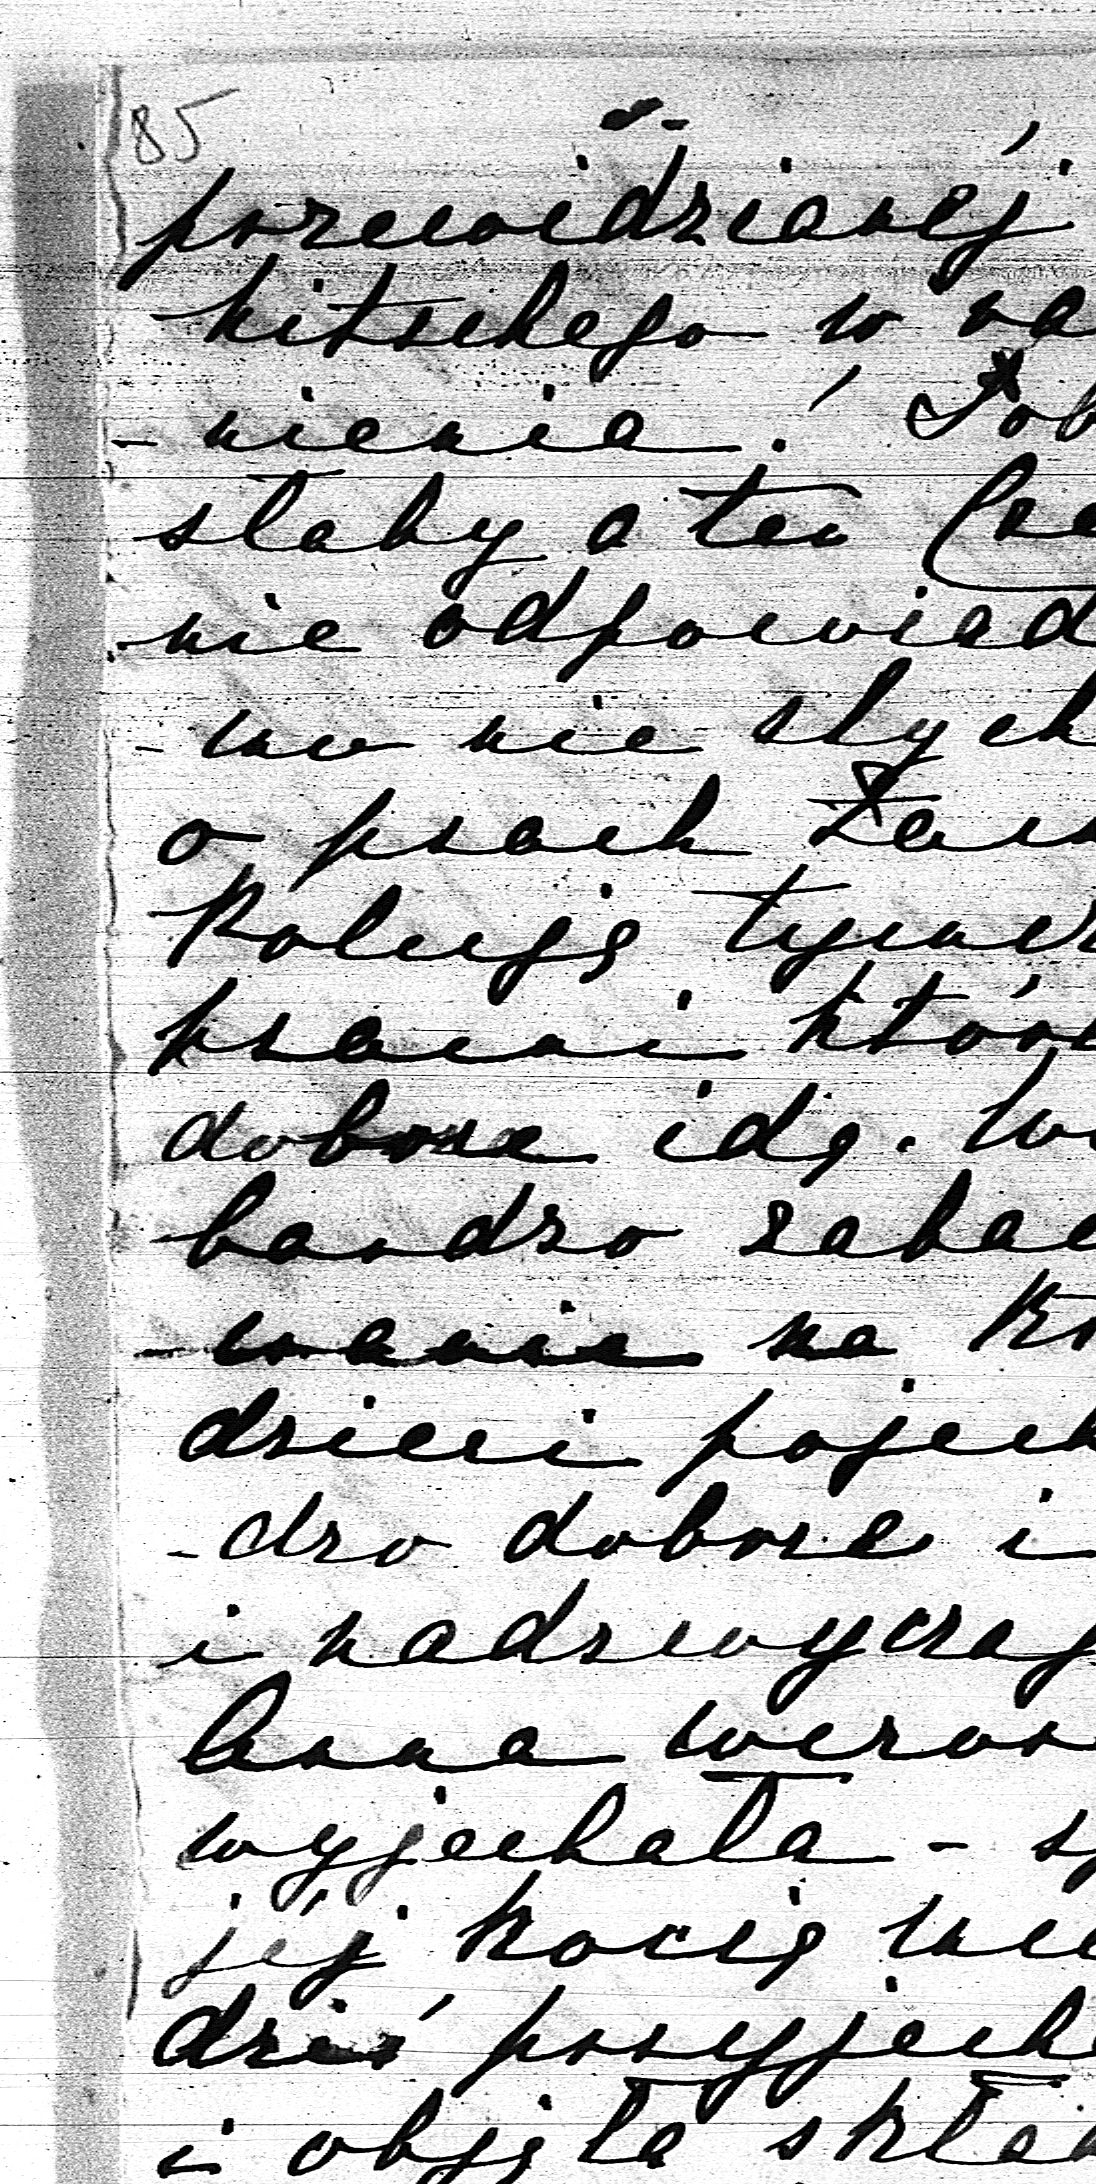 85
przewidzianéj
kitschego w ra
- nienia! Żob
słaby a ten
nie odpowiad
- mo nie słych
o psach Żad
Poluję tymcz
psami któr
dobrze idą. W
bardzo zabaw
- wanie na Kr
dzieci pojech
- dzo dobrze i
i nadzwyczaj
Anna
wyjechała - s
jéj kocię
dziś przyjech
i objęła skład